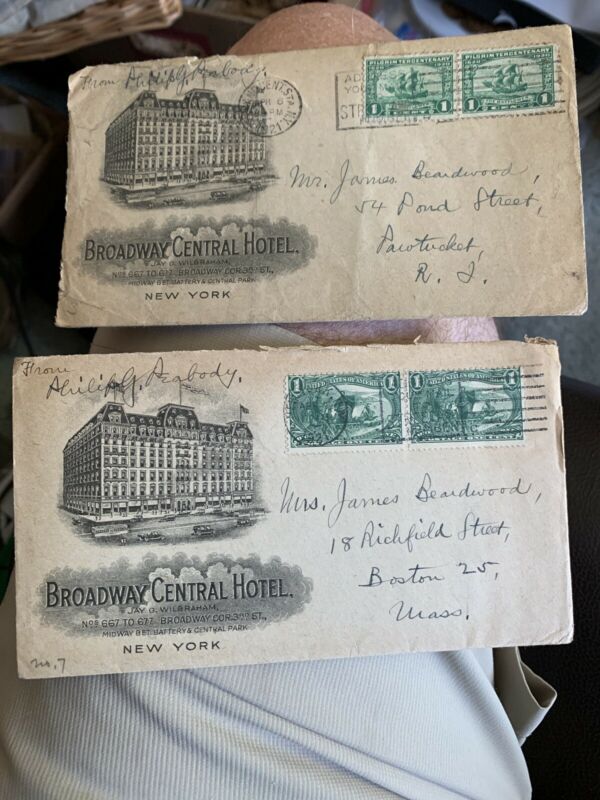 From Philip G. Peabody.
PILGRIM TERCENTENARY
1620 1920
1 1
PILGRIM TERCENTENARY
1620 1920
1 1
Mr. James Beardwood,
54 Pond Street,
Pawtucket,
R. I.
BROADWAY CENTRAL HOTEL.
JAY G. WILBRAHAM,
NOS 667 TO 677 BROADWAY COR. 3RD ST.,
MIDWAY BET. BATTERY & CENTRAL PARK
NEW YORK
From
Philip G. Peabody.
1 UNITED STATES OF AMERICA 1
1 UNITED STATES OF AMERICA 1
Mrs. James Beardwood,
18 Richfield Street,
Boston 25,
Mass.
BROADWAY CENTRAL HOTEL.
JAY G. WILBRAHAM,
NOS 667 TO 677 BROADWAY COR. 3RD ST.,
MIDWAY BET. BATTERY & CENTRAL PARK
NEW YORK
no. 7